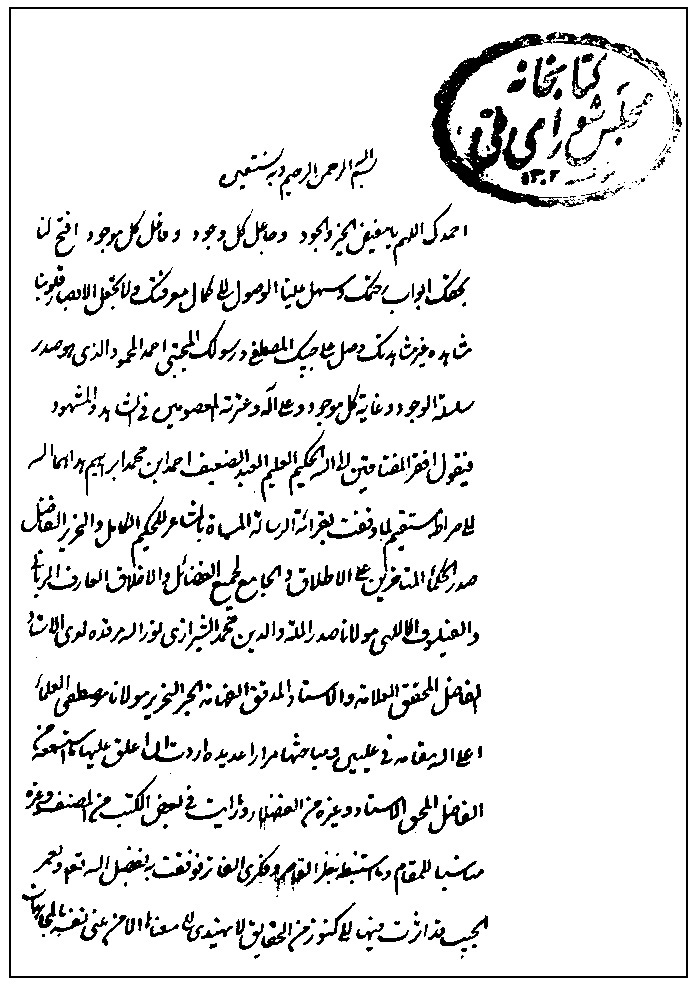 کتابخانه
مجلس شورای ملی
۱۳۰۲
بسم الله الرحمن الرحیم وبه نستعین
احمدک اللهم یا مفیض الخیر والجود وجاعل کل وجود وفاعل کل موجود افتح لنا
بحقک ابواب رحمتک وسهل علینا الوصول الی کمال معرفتک ولا تجعل الابصار قلوبنا
شاهدة غیر مشاهدتک وصل علی حبیبک المصطفی ورسولک المجتبی احمد المحمود الذی هو صدر
سلسلة الوجود وغایة کل موجود وعلی آله وعترته المعصومین فی الشاهد والمشهود
فیقول افقر المفتاقین الی الله الحکیم العلیم العبد الضعیف احمد ابن محمد ابراهیم هداهما الله
الی صراط مستقیم لما وفقت بقرائة الرسالة المسماة بالمشاعر للحکیم الکامل والنحریر الفاضل
صدر الحکماء المتاخرین علی الاطلاق والجامع لجمیع الفضائل والاخلاق العارف الربانی
والفیلسوف الالهی مولانا صدر الملة والدین محمد الشیرازی نور الله مرقده لدی الاستاد
الفاضل المحقق العلامة والاستاد المدقق الفهامة الحبر النحریر مولانا مصطفی العلماء
اعلی الله مقامه فی علیین ومباحثها مرارا عدیدة اردت ان اعلق علیها ما استمعته من
الفاضل المحقق الاستاد وغیره من الفضلاء ورایت فی بعض الکتب من المصنف وغیره
مناسبا للمقام وما استنبط بنظر القاصر وفکری الفاتر فوفقت به بفضل الله تعالی ولعمر
الحبیب قد اشرت فیها الی کنوز من الحقایق لا یهتدی الی معناها الا من عنی نفسه بالمجاهدات